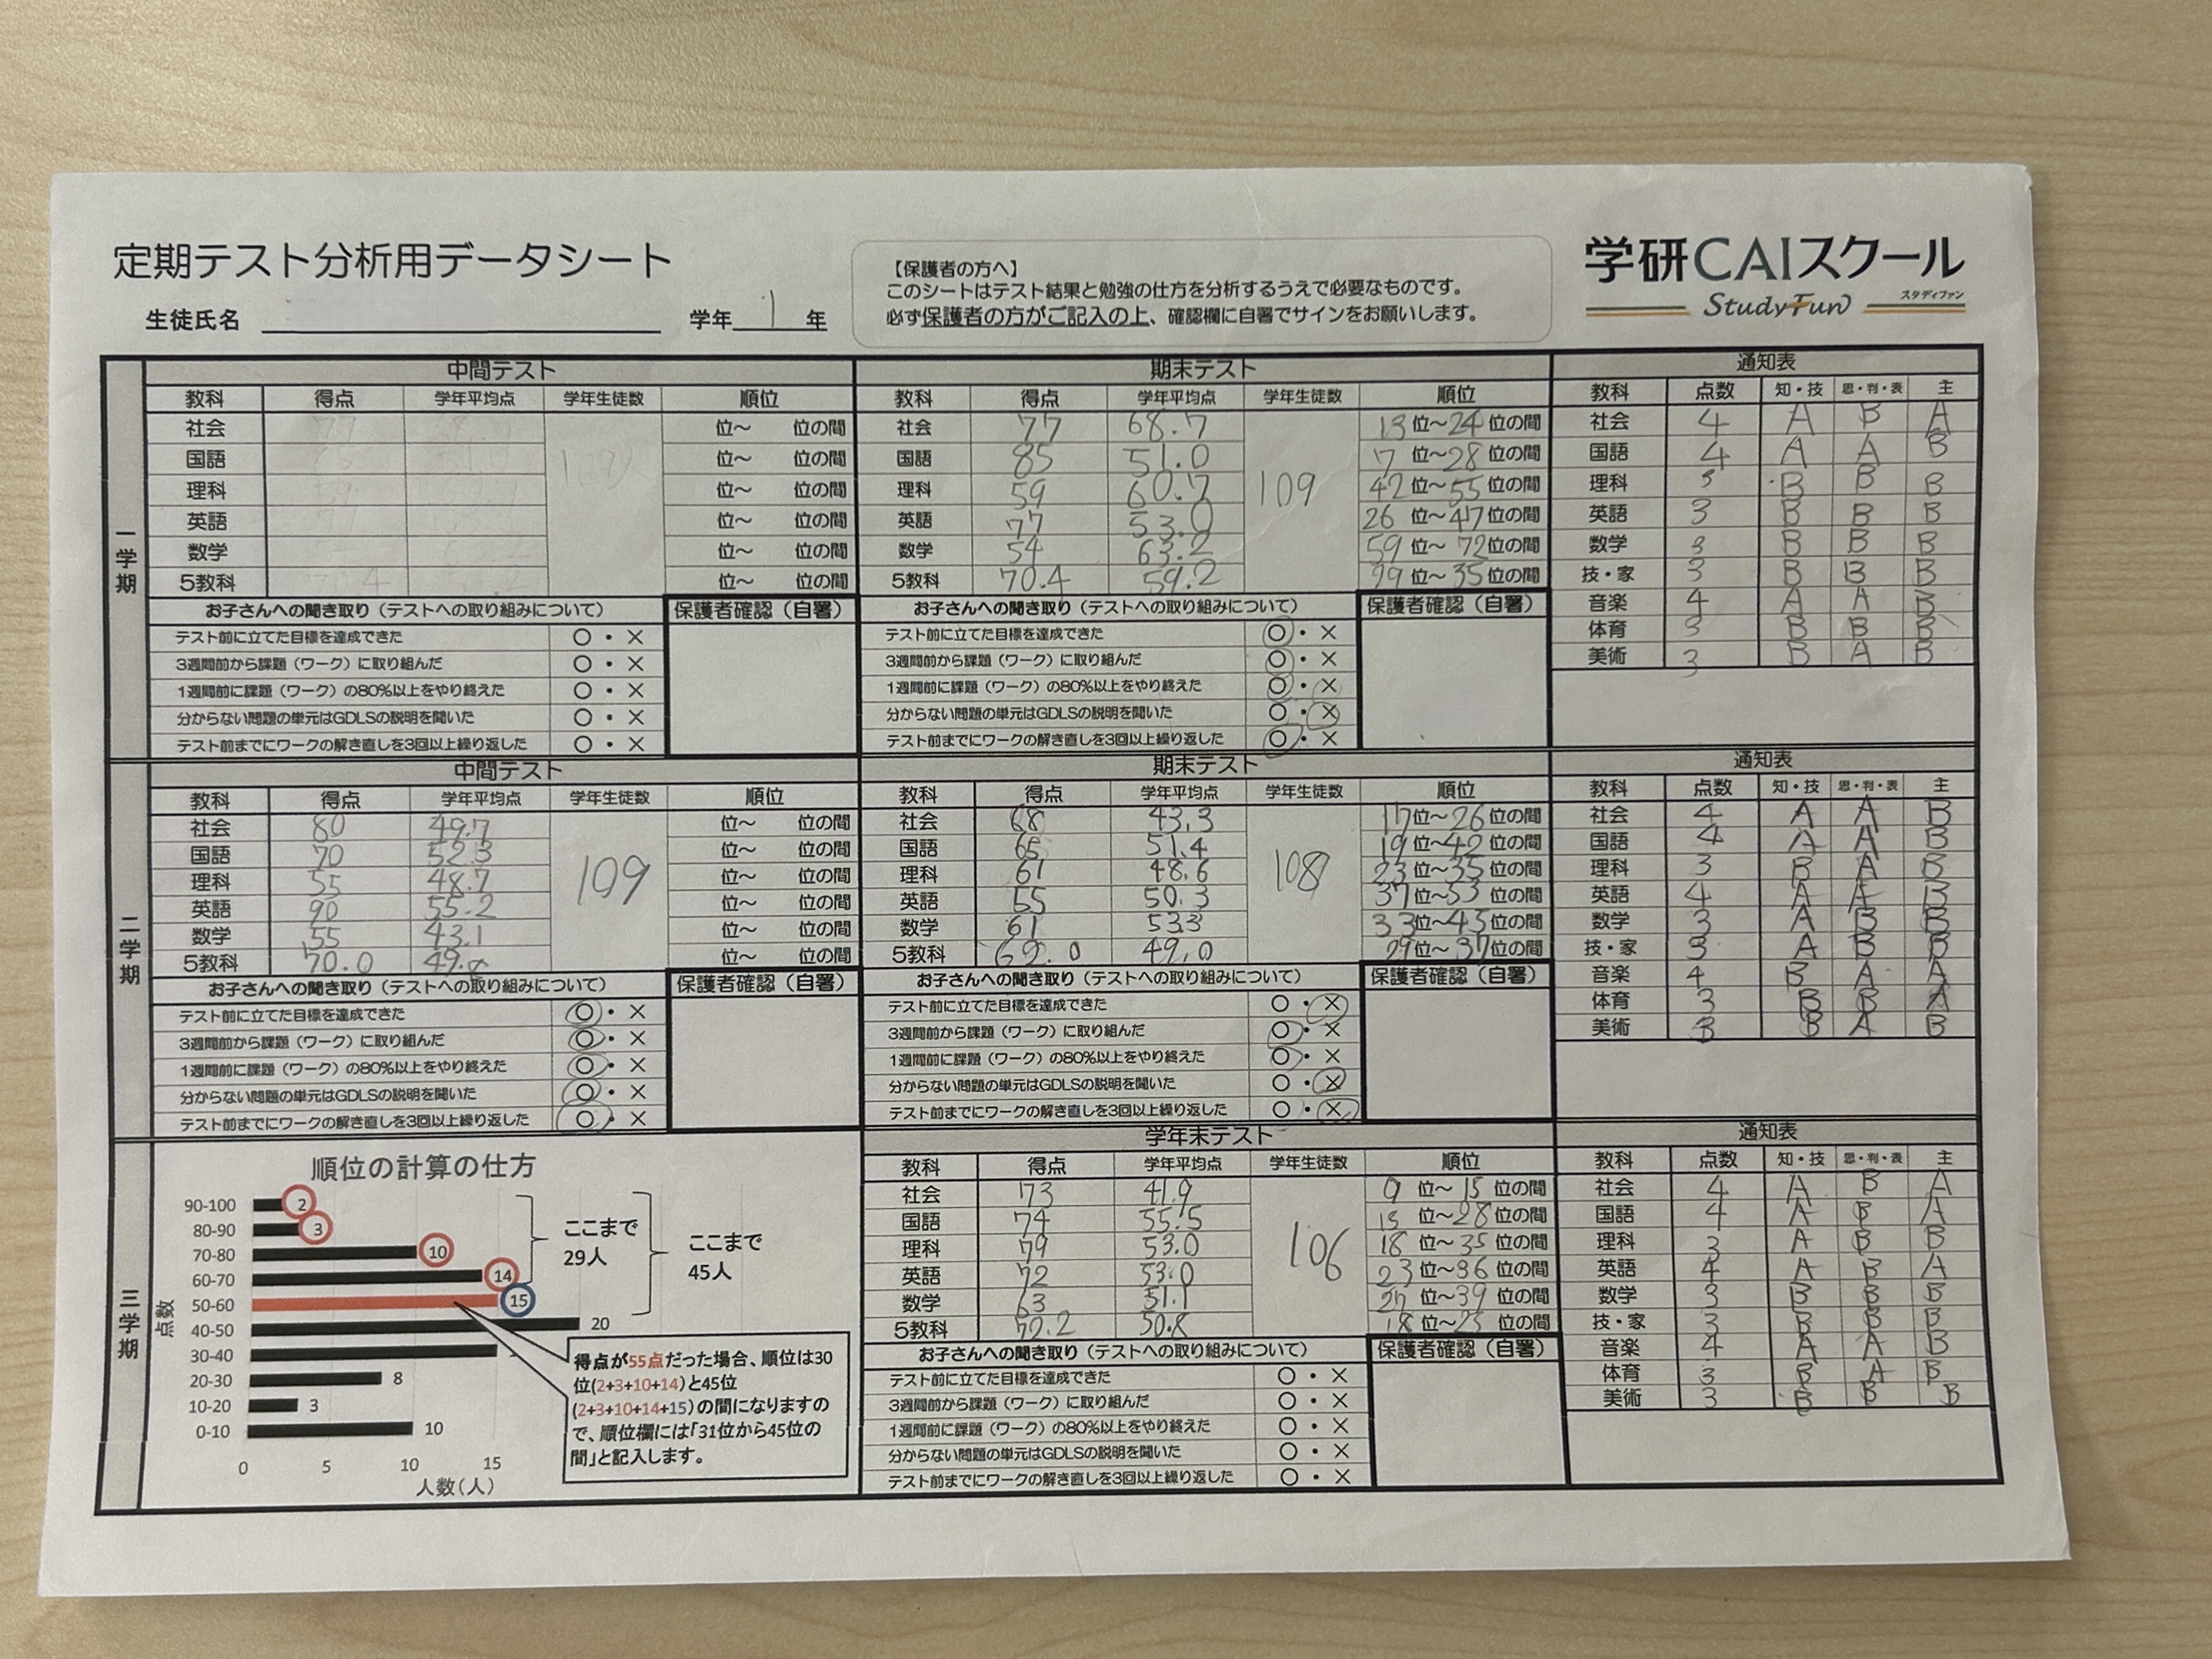 定期テスト分析用データシート
生徒氏名 学年 1 年
【保護者の方へ】
このシートはテスト結果と勉強の仕方を分析するうえで必要なものです。
必ず保護者の方がご記入の上、確認欄に自署でサインをお願いします。
学研CAIスクール
StudyFun スタディファン
一学期
中間テスト
教科 得点 学年平均点 学年生徒数 順位
社会 位～ 位の間
国語 位～ 位の間
理科 位～ 位の間
英語 位～ 位の間
数学 位～ 位の間
5教科 位～ 位の間
お子さんへの聞き取り（テストへの取り組みについて） 保護者確認（自署）
テスト前に立てた目標を達成できた ○・×
3週間前から課題（ワーク）に取り組んだ ○・×
1週間前に課題（ワーク）の80%以上をやり終えた ○・×
分からない問題の単元はGDLSの説明を聞いた ○・×
テスト前までにワークの解き直しを3回以上繰り返した ○・×
期末テスト
教科 得点 学年平均点 学年生徒数 順位
109
社会 77 68.7 13位～24位の間
国語 85 51.0 17位～28位の間
理科 59 60.7 42位～55位の間
英語 77 53.0 26位～47位の間
数学 54 63.2 59位～72位の間
5教科 70.4 59.2 位～35位の間
お子さんへの聞き取り（テストへの取り組みについて） 保護者確認（自署）
テスト前に立てた目標を達成できた ○・×
3週間前から課題（ワーク）に取り組んだ ○・×
1週間前に課題（ワーク）の80%以上をやり終えた ○・×
分からない問題の単元はGDLSの説明を聞いた ○・×
テスト前までにワークの解き直しを3回以上繰り返した ○・×
通知表
教科 点数 知・技 思・判・表 主
社会 4 A B A
国語 4 A A B
理科 3 B B B
英語 3 B B B
数学 3 B B B
技・家 3 B B B
音楽 4 A A B
体育 3 B B B
美術 3 B A B
二学期
中間テスト
教科 得点 学年平均点 学年生徒数 順位
109
社会 80 49.7 位～ 位の間
国語 70 52.3 位～ 位の間
理科 55 48.7 位～ 位の間
英語 90 55.2 位～ 位の間
数学 55 43.1 位～ 位の間
5教科 70.0 位～ 位の間
お子さんへの聞き取り（テストへの取り組みについて） 保護者確認（自署）
テスト前に立てた目標を達成できた ○・×
3週間前から課題（ワーク）に取り組んだ ○・×
1週間前に課題（ワーク）の80%以上をやり終えた ○・×
分からない問題の単元はGDLSの説明を聞いた ○・×
テスト前までにワークの解き直しを3回以上繰り返した ○・×
期末テスト
教科 得点 学年平均点 学年生徒数 順位
108
社会 68 43.3 17位～26位の間
国語 65 51.4 19位～42位の間
理科 61 48.6 23位～35位の間
英語 55 50.3 37位～53位の間
数学 61 53.3 33位～45位の間
5教科 62.0 49.0 29位～37位の間
お子さんへの聞き取り（テストへの取り組みについて） 保護者確認（自署）
テスト前に立てた目標を達成できた ○・×
3週間前から課題（ワーク）に取り組んだ ○・×
1週間前に課題（ワーク）の80%以上をやり終えた ○・×
分からない問題の単元はGDLSの説明を聞いた ○・×
テスト前までにワークの解き直しを3回以上繰り返した ○・×
通知表
教科 点数 知・技 思・判・表 主
社会 4 A A B
国語 4 A A B
理科 3 B A B
英語 4 A A B
数学 3 A B B
技・家 3 A B B
音楽 4 B A A
体育 3 B B A
美術 3 B A B
三学期
順位の計算の仕方
点数
90-100 2
80-90 3
70-80 10
60-70 14
50-60 15
40-50 20
30-40
20-30 8
10-20 3
0-10 10
0 5 10 15
人数（人）
ここまで
29人
ここまで
45人
得点が55点だった場合、順位は30
位(2+3+10+14)と45位
(2+3+10+14+15)の間になりますの
で、順位欄には「31位から45位の
間」と記入します。
学年末テスト
教科 得点 学年平均点 学年生徒数 順位
106
社会 73 41.9 9位～15位の間
国語 74 55.5 15位～28位の間
理科 79 53.0 18位～35位の間
英語 72 53.0 23位～36位の間
数学 63 51.1 27位～39位の間
5教科 72.2 50.8 18位～25位の間
お子さんへの聞き取り（テストへの取り組みについて） 保護者確認（自署）
テスト前に立てた目標を達成できた ○・×
3週間前から課題（ワーク）に取り組んだ ○・×
1週間前に課題（ワーク）の80%以上をやり終えた ○・×
分からない問題の単元はGDLSの説明を聞いた ○・×
テスト前までにワークの解き直しを3回以上繰り返した ○・×
通知表
教科 点数 知・技 思・判・表 主
社会 4 A B A
国語 4 A B A
理科 3 A B B
英語 4 A B A
数学 3 B B B
技・家 3 B B B
音楽 4 A A B
体育 3 B A B
美術 3 B B B